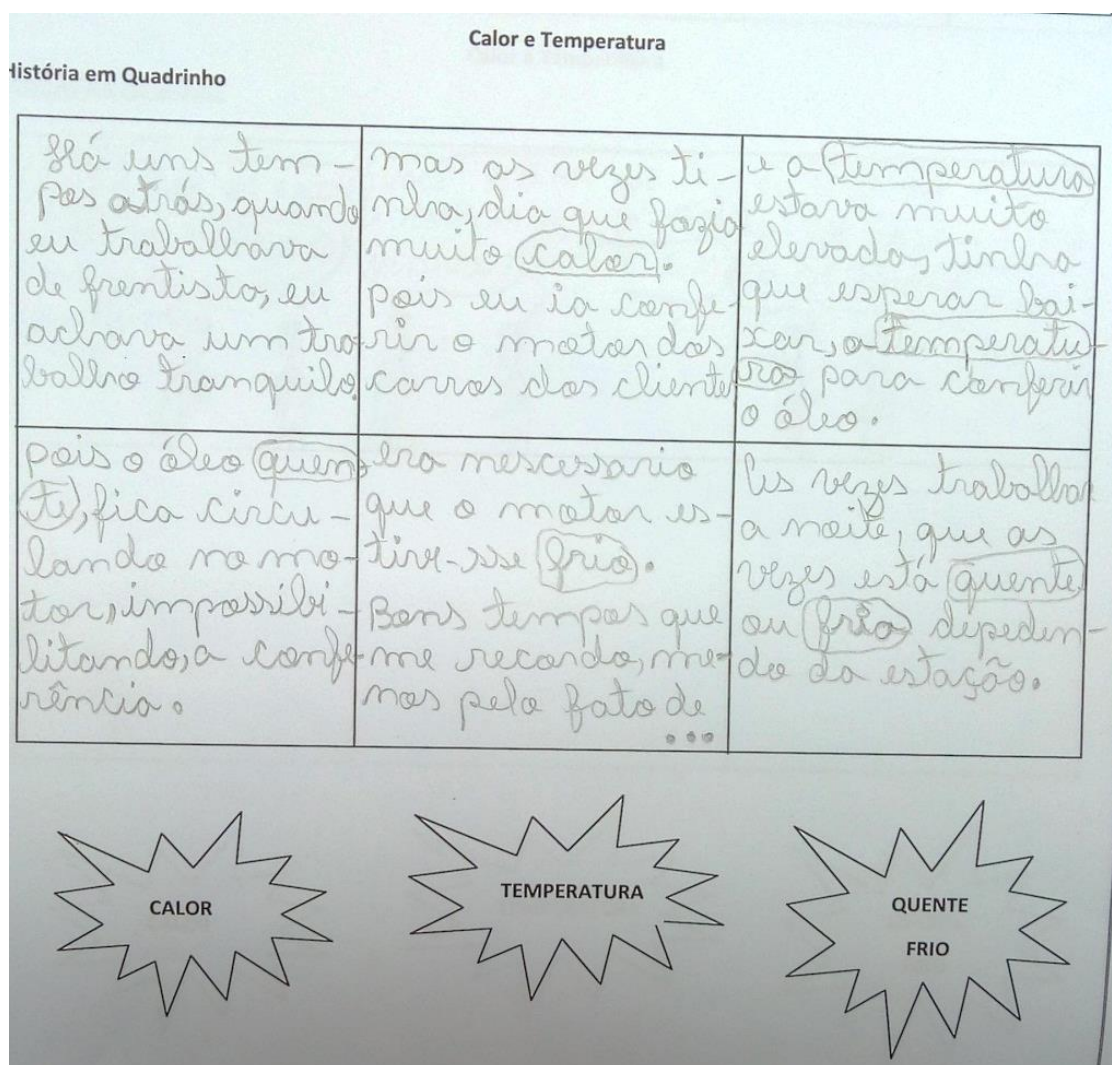 Calor e Temperatura
História em Quadrinho
Há uns tem-
pos atrás, quando
eu trabalhava
de frentista, eu
achava um tra-
balho tranquilo.
mas as vezes ti-
nha, dia que fazia
muito calor.
pois eu ia confe-
rir o motor dos
carros dos cliente
e a temperatura
estava muito
elevada, tinha
que esperar bai-
xar, a temperatu-
ra para conferir
o óleo.
pois o óleo quen-
te, fica circu-
lando no mo-
tor, impossibi-
litando, a confe-
rência.
era nescessario
que o motor es-
tive-sse frio.
Bons tempos que
me recordo, me-
nos pelo fato de
...
As vezes trabalhar
a noite, que as
vezes está quente
ou frio depeden-
do da estação.
CALOR
TEMPERATURA
QUENTE
FRIO